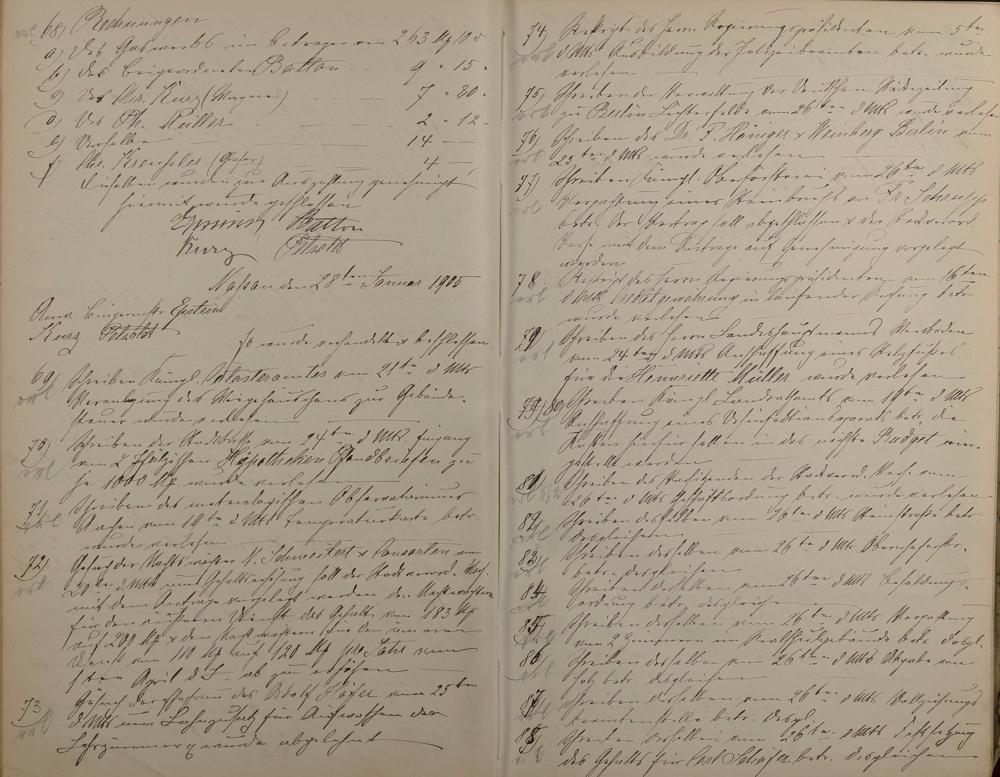 68) Rechnungen
a) des Gaswerks im Betrage von 263 M 10 d
b) des Beigeordneten Batton 9 " 15 "
c) des Chr. Kurz (Wagner) 7 " 80 "
d) des Ph. Müller 2 " 12 "
e) Derselbe 14 —
f) (Glaser) 4 —
Dieselben wurden zur Auszahlung genehmigt
Hiermit wurde geschlossen
Batton
Kurz
Nassau den 28ten Januar 1905
Anw. Bürgermstr Epstein
Kurz
Es wurde verhandelt & beschlossen
69) Schreiben Königl. Katasteramtes vom 21ten d Mts
zur Gebäude-
steuer wurde verlesen
70) Schreiben der Stadtkasse vom 24ten d Mts. Eingang
von 2 Hypotheken Pfandbriefen zu
je 1000 M wurde verlesen
71) Schreiben des meterologischen Observatoriums
Aachen vom 19ten d Mts Temperaturkarte betr.
wurde verlesen
72) Gesuch der Nachtwächter W. Schweikert & Consorten vom
d Mts um Gehaltserhöhung soll der Stadtverord. Vers.
mit dem Antrage vorgelegt werden den Nachtwächtern
für den äusseren Dienst das Gehalt von 183 M
auf 200 M & den Nachtwächtern für den inneren
Dienst von 110 M auf 120 M pro Jahr vom
1ten April d J. ab zu erhöhen
73 Gesuch der Ehefrau des Adolf vom 25ten
d Mts um Lohnzusatz für Aufwaschen der
Lehrzimmer wurde abgelehnt
74) Reskript des Herrn Regierungspräsidenten vom 5ten
d Mts Ausbildung der Polizeibeamten betr. wurde
verlesen
75) Schreiben der Verwaltung der Deutschen Städtezeitung
zu Berlin Lichterfelde vom 26ten d Mts wurde verlesen
76) Schreiben des Dr. F. & Weinberg Berlin vom
25ten d Mts wurde verlesen
77) Schreiben Königl. Oberförsterei vom 26ten d Mts
Verpachtung eines Steinbruchs an Fr.
betr. Der Vertrag soll abgeschlossen & der Stadtverord.
Vers. mit dem Antrage auf Genehmigung vorgelegt
werden
78 Reskript des Herrn Regierungspräsidenten vom 16ten
d Mts Creditgewährung in laufender Rechnung betr.
wurde verlesen
79) Schreiben des Herrn Landeshauptmanns Wiesbaden
vom 24ten d Mts Anschaffung eines
für die Henriette Müller wurde verlesen
80) Schreiben Königl. Landratsamts vom 19ten d Mts
Anschaffung eines Desinfektionsapparats betr. die
Kosten hierfür sollen in das nächste Budget ein-
gestellt werden
81) Schreiben des Vorsitzenden der Stadtverord. Vers. vom
26ten d Mts Geschäftsordnung betr. wurde verlesen
82) Schreiben desselben vom 26ten d Mts betr.
desgleichen
83) Schreiben desselben vom 26ten d Mts
betr. desgleichen
84) Schreiben desselben vom 26ten d Mts Besoldungs-
ordnung betr. desgleichen
85) Schreiben desselben vom 26ten d Mts Verpachtung
von 2 Zimmern im betr. desgl.
86) Schreiben desselben vom 26ten d Mts Abgabe von
Holz betr. desgleichen
87) Schreiben desselben vom 26ten d Mts Vollziehungs-
beamtenstelle betr. desgl.
88) Schreiben desselben vom 26ten d Mts Festsetzung
des Gehalts für Carl Schäfer betr. desgleichen